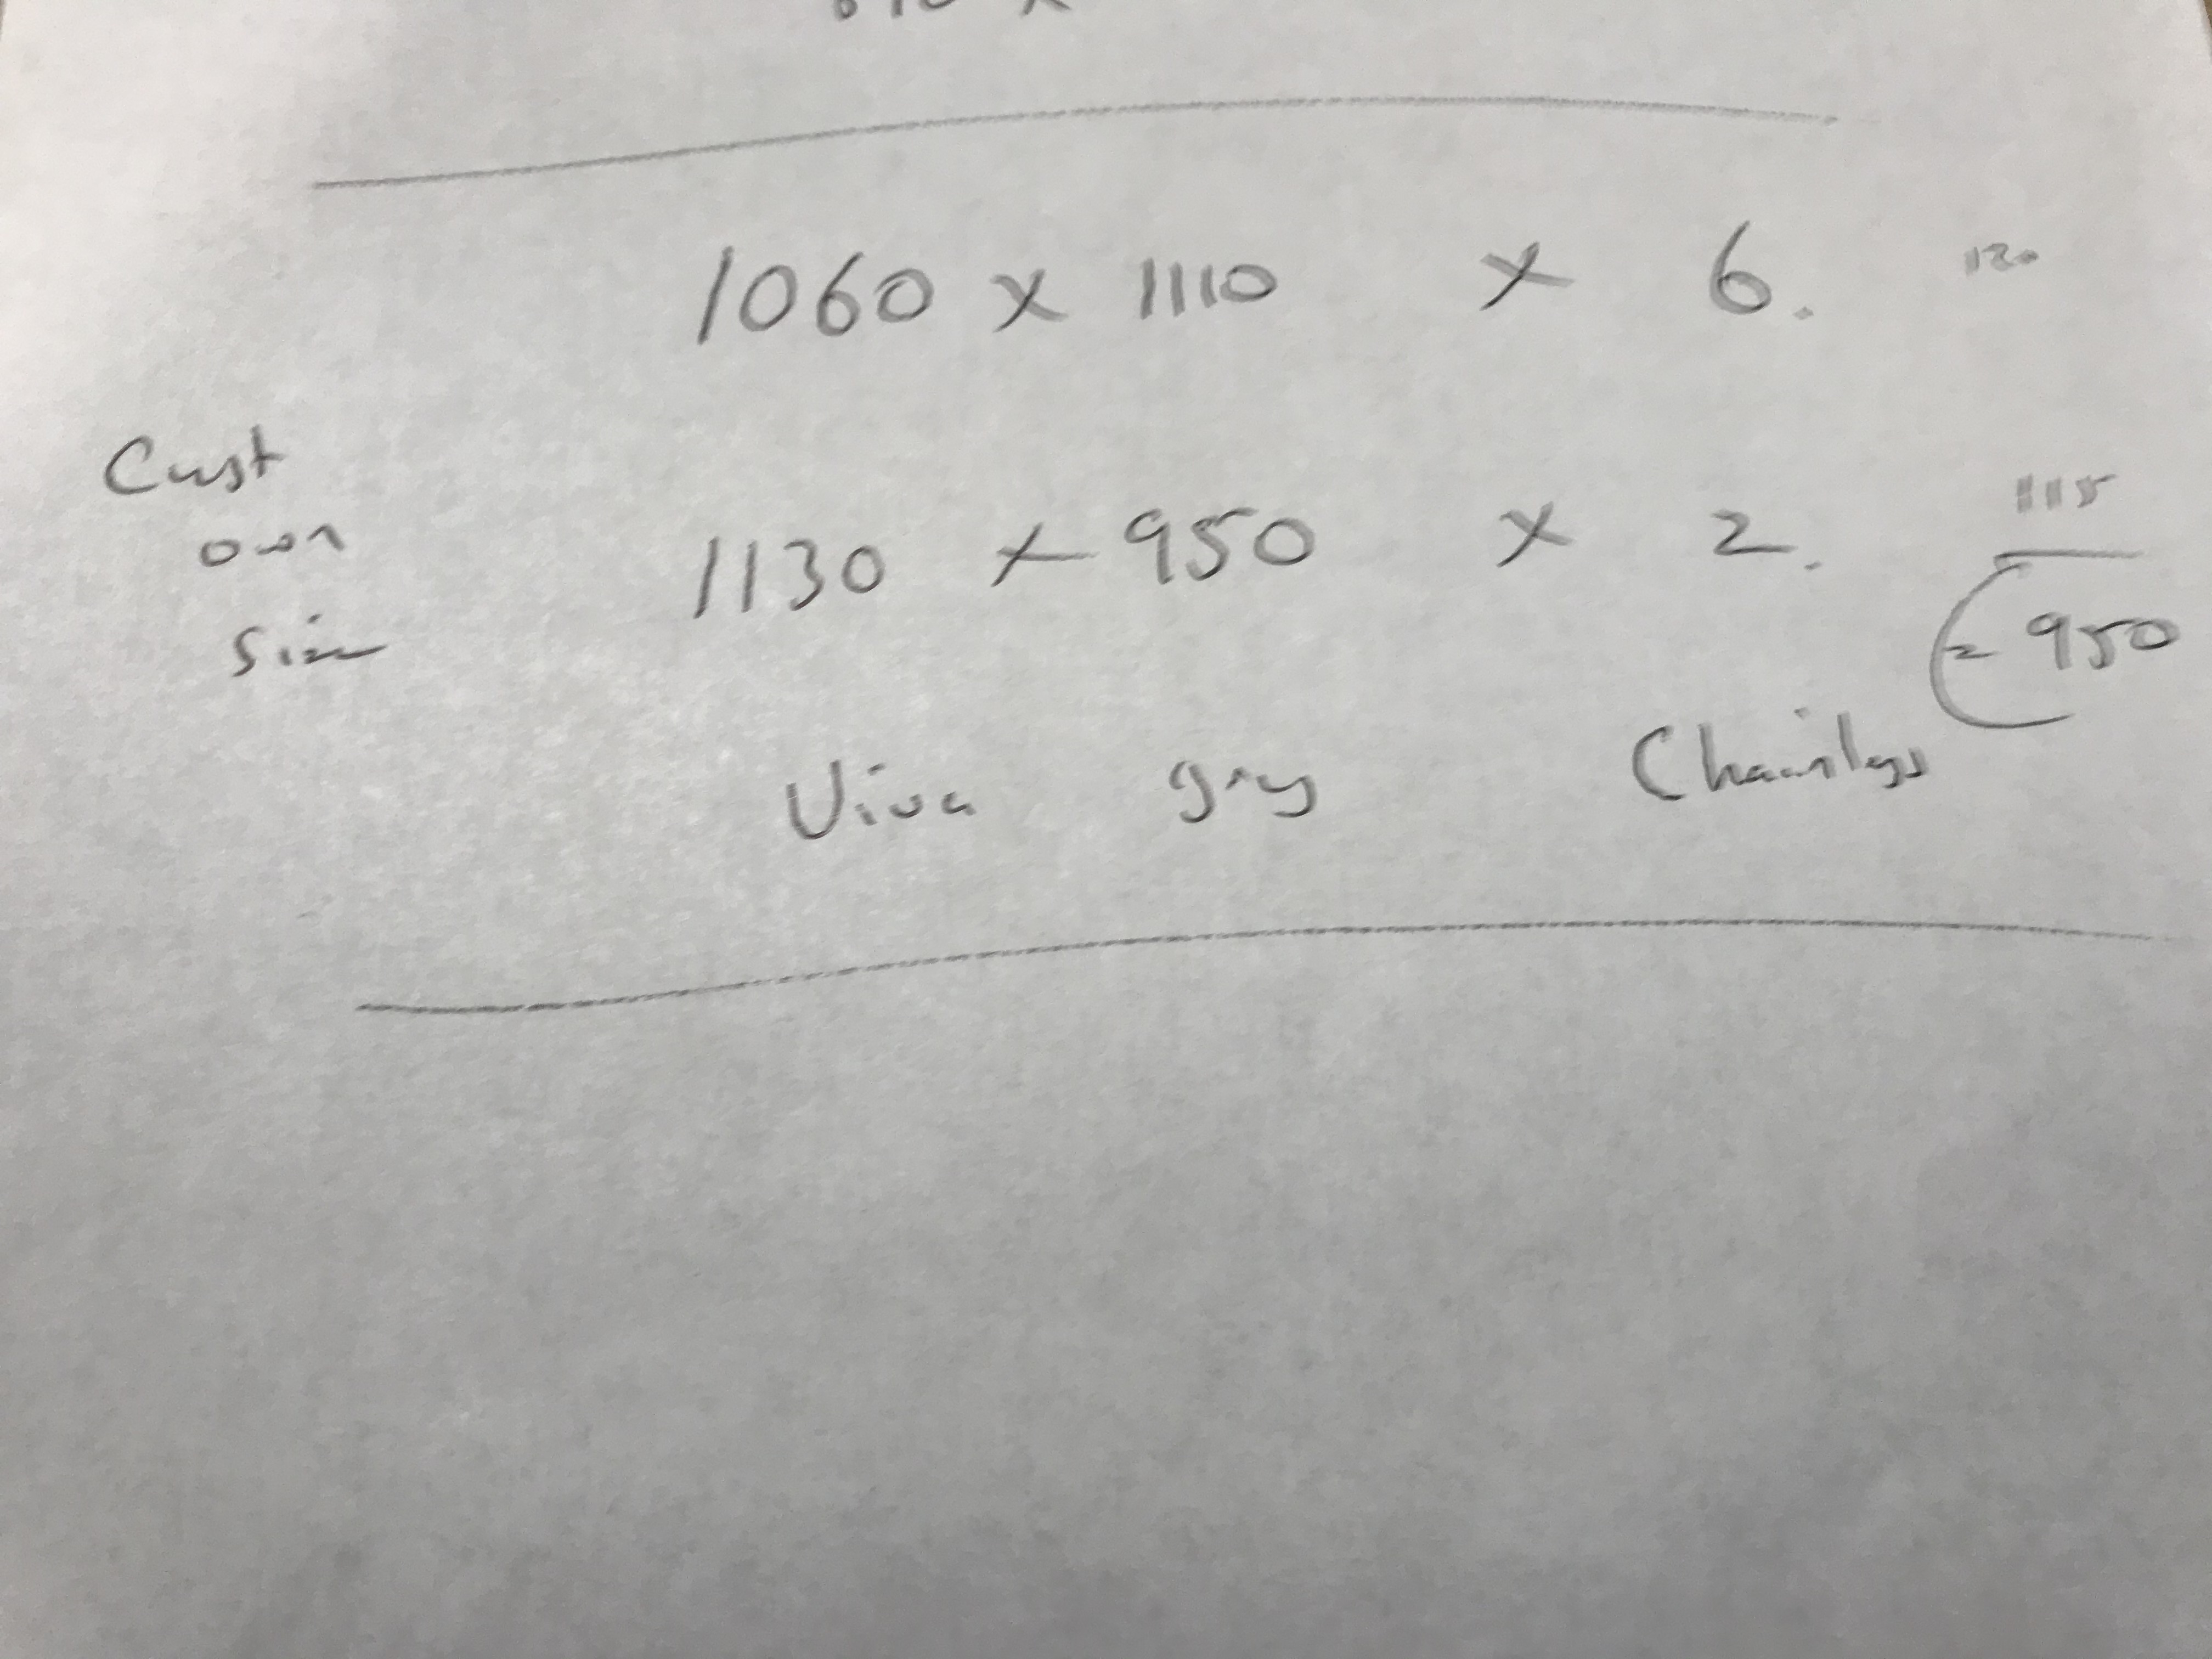 1060 x 1110 x 6. 120
Cust
own
size
1130 x 950 x 2.
1115
= 950
Viva grey Chainless